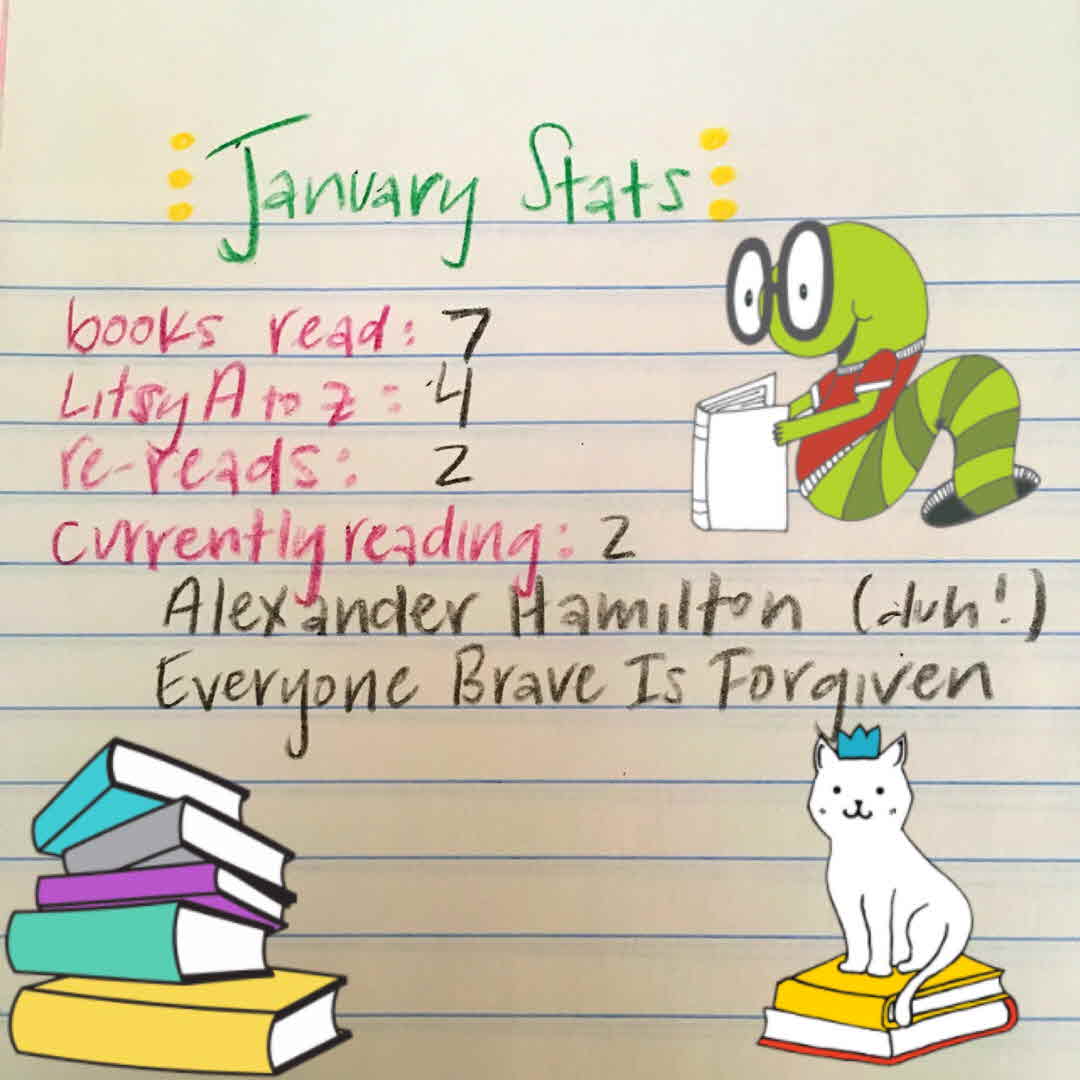 January Stats
books read: 7
Litsy A to Z: 4
re-reads: 2
currently reading: 2
Alexander Hamilton (duh!)
Everyone Brave Is Forgiven